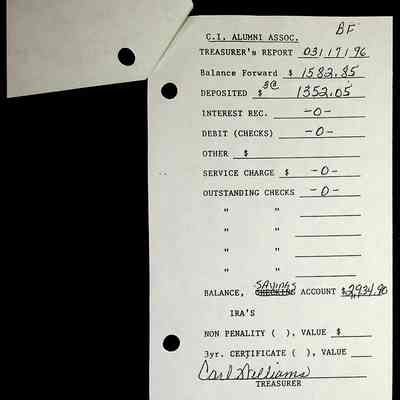 BF
C.I. ALUMNI ASSOC.
TREASURER's REPORT 03/17/96
Balance Forward $ 1582.85
DEPOSITED $ 3@ 1352.05
INTEREST REC. -0-
DEBIT (CHECKS) -0-
OTHER $
SERVICE CHARGE $ -0-
OUTSTANDING CHECKS -0-
" "
" "
" "
" "
BALANCE, SAVINGS CHECKING ACCOUNT $2,934.90
IRA'S
NON PENALITY ( ), VALUE $
3yr. CERTIFICATE ( ), VALUE
Carl Williams
TREASURER